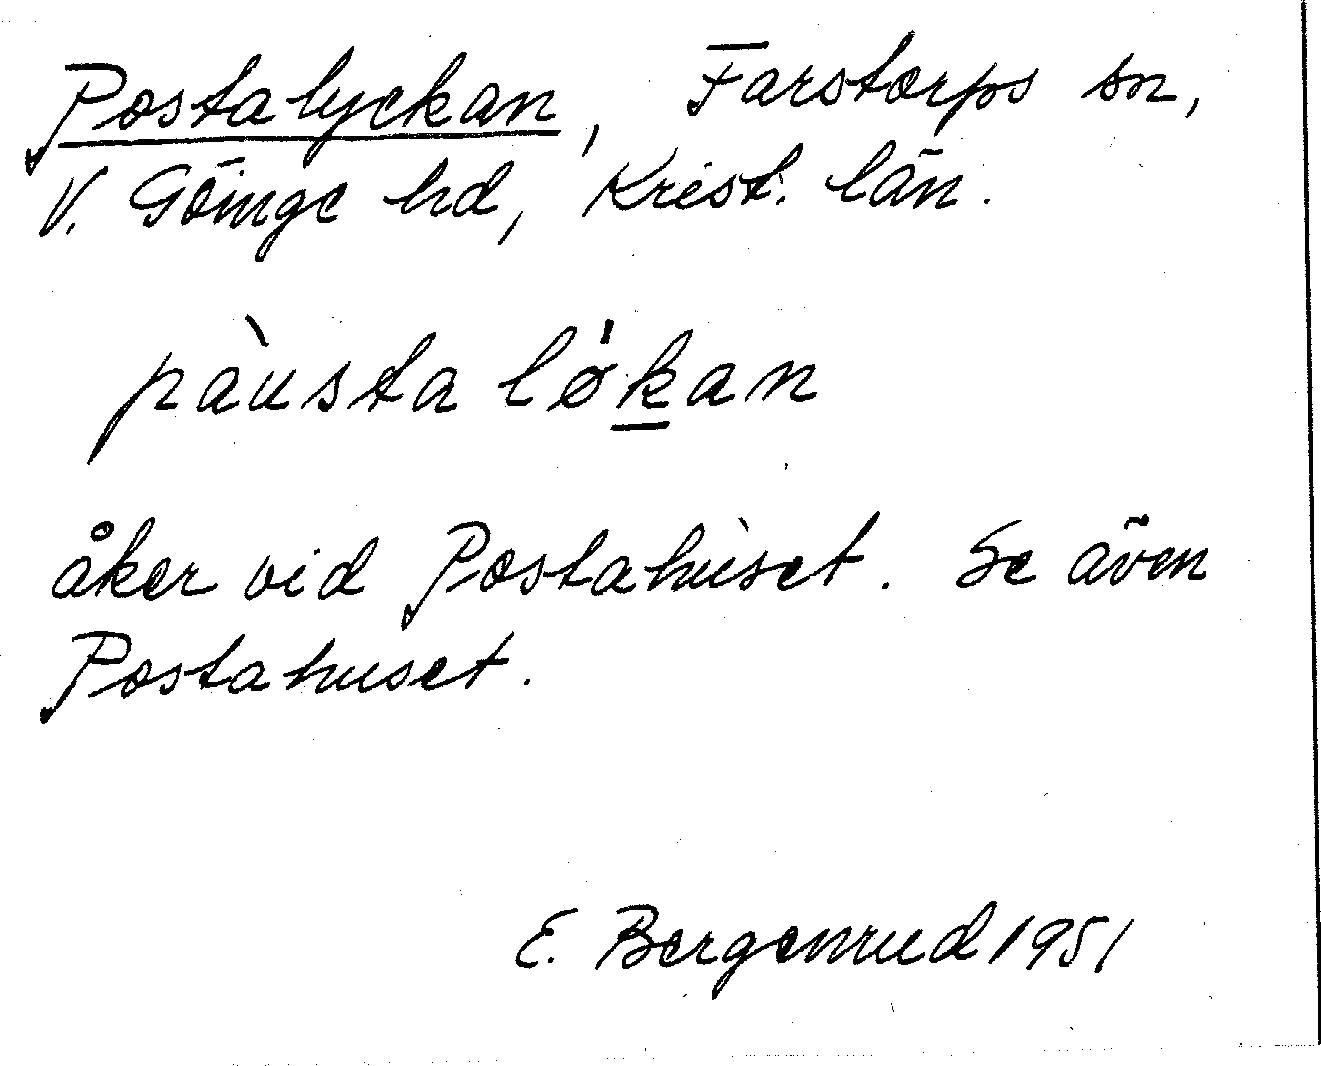 Postalyckan, Farstorps sn,
V. Göinge hd, Krist. län.
pàusta løkan
åker vid Postahuset. Se även
Postahuset.
E. Bergenrud 1951